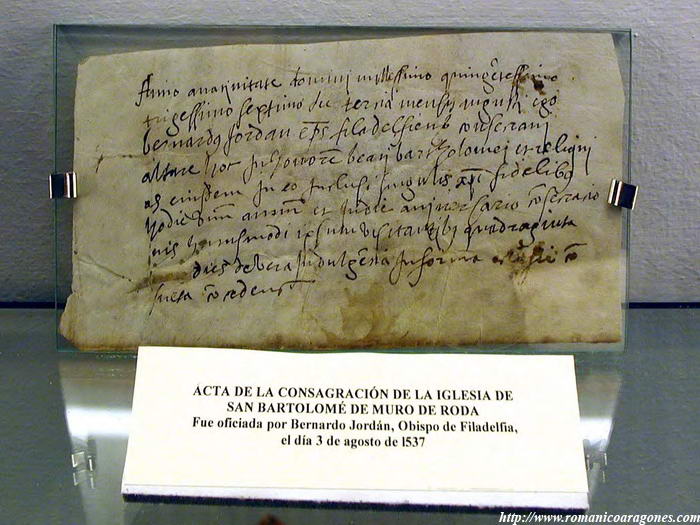 Anno anatiuitate domini millessimo quingētessimo
trigessimo septimo die tercia mensis augusti ego
bernardus Jordan eps filadelfiensis consecraui
altare hoc In honorē beati bartholomei et reliqui
as eiusdem In eo Inclusi singulis xpi fidelibus
hodie unum annum et In die aniuersario consecratio
nis huiusmodi ipsum visitantibus quadraginta
dies de vera Indulgencia In forma eclesie con
sueta
ACTA DE LA CONSAGRACIÓN DE LA IGLESIA DE
SAN BARTOLOMÉ DE MURO DE RODA
Fue oficiada por Bernardo Jordán, Obispo de Filadelfia,
el día 3 de agosto de l537
http://www.romanicoaragones.com